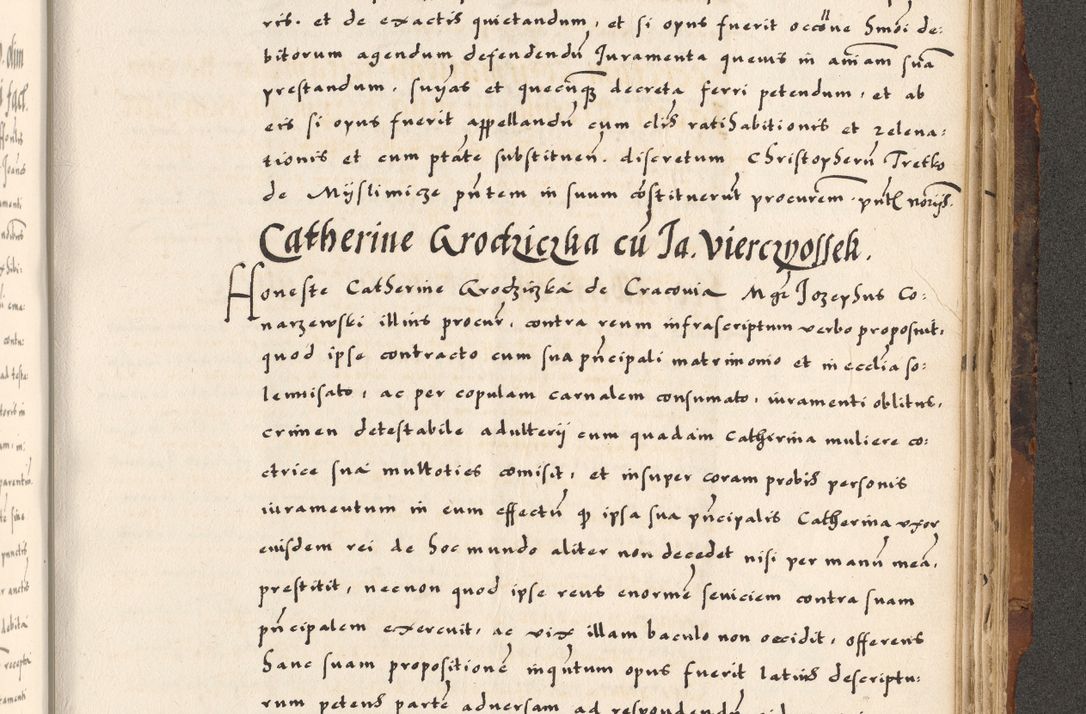 ris. et de exactis quietandum, et si opus fuerit occõne hmõi de:
bitorum agendum defendendũ Juramenta quevis in aniam suã
prestandum, suÿas et quecũqȝ decreta ferri petendum, et ab
eis si opus fuerit appellandũ cum clis ratihabitionis et relena:
tionis et cum ptãte substituen. discretum Christopherũ Tretko
de Mÿslimicze pñtem in suum cõstituerũt procurem. pñtĺ
Catherine Grodziczka cũ Ja. Vierczyossek.
Honeste Catherine Grodziczka de Cracovia Mgr Jozephus Co:
narzewski illius procur, contra reum infrascriptum verbo proposuit,
quod ipse contracto cum sua pñcipali matrimonio et in ecclia so:
lemnisato, ac per copulam carnalem consumato, iuramenti oblitus,
crimen detestabile adulterij cum quadam Catherina muliere co:
ctrice sua multoties comisit, et insuper coram probis personis
iuramentum in eum effectũ qp ipsa sua pñcipalis Catherina uxor
eiusdem rei de hoc mundo aliter non decedet nisi per manũ meã,
prestitit, necnon quod ipse reus enormẽ seviciem contra suam
pñcipalem exercuit, ac vix illam baculo non occidit, offerens
hanc suam propositionẽ inqñtum opus fuerit latius descriptu:
rum petens partẽ adversam ad respondendũ